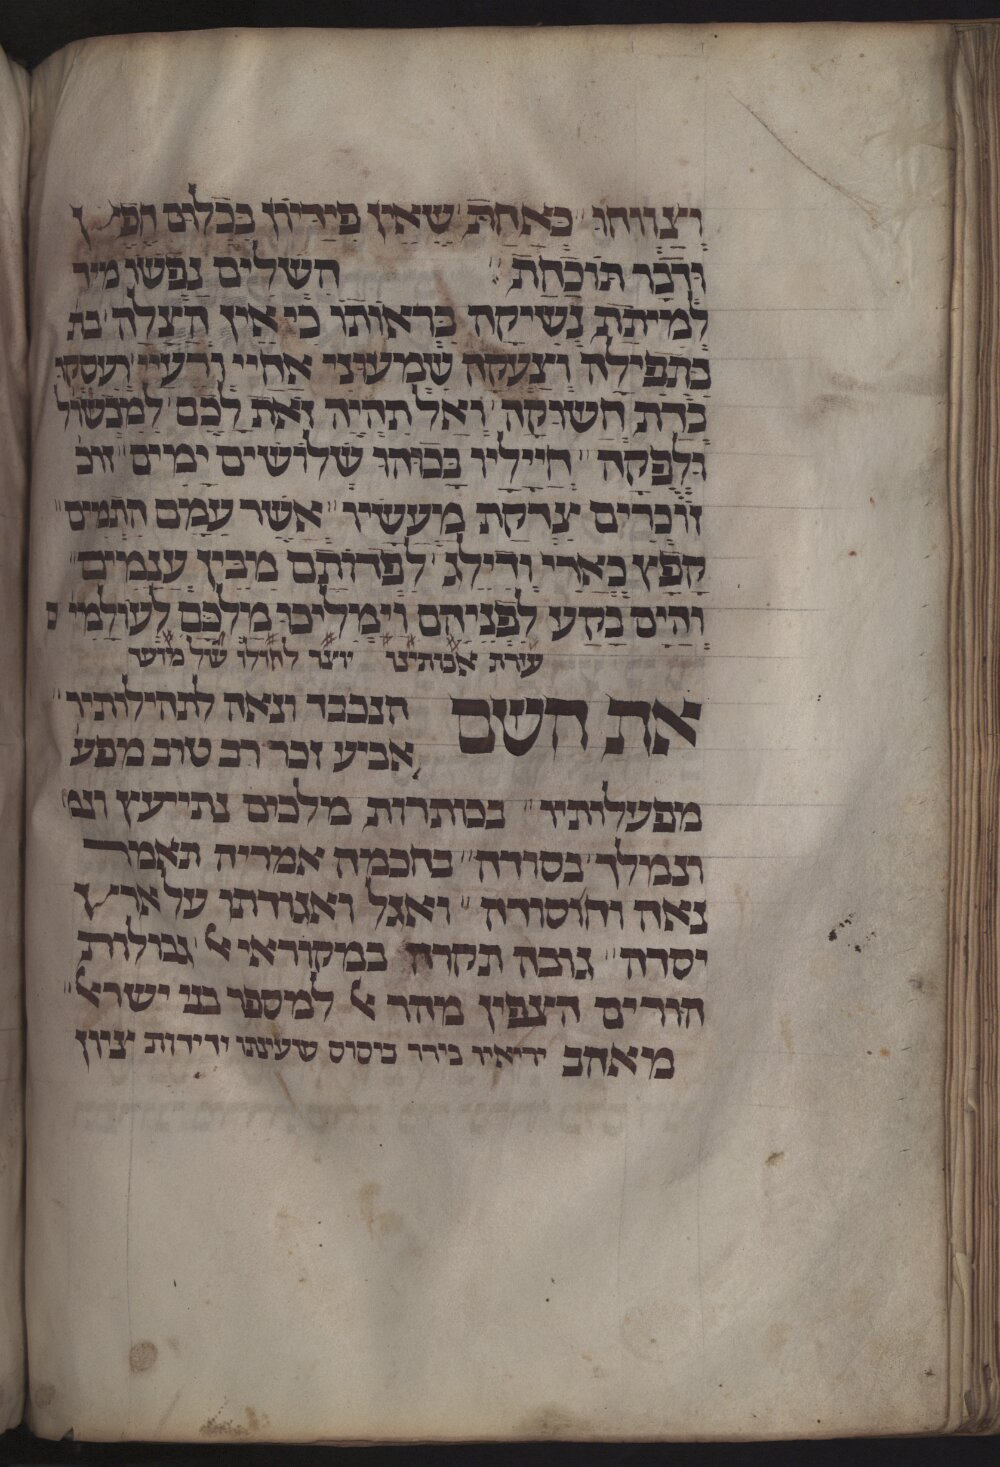 ויצווחו כאחת שאין פידיון בכלום חפץ
ודבר תוכחת השלים נפשו מיד
למיתת נשיקה בראותו כי אין הצלה בת
בתפילה וצעקה שמעוני אחיי ורעיי ועסקו
בדת חשוקה ואל תהיה זאת לכם למכשול
ולפקה חייליו בכוהו שלושים ימים וזכ
זוכרים צדקת מעשיו אשר עמם התמים
קפץ כארי ודילג לפדותם מבין ענמים
והים בקע לפניהם וימליכו מלכם לעולמי ם
עזרת אבותינו יוצר לחולו של מועד
את השם הנכבד ונאה לתהילותיו
אביע זכר רב טוב מפע
מפעלותיו בסותרות מלכים נתייעץ ונמ
ונמלך בסודה בחכמה אמריה תאמר
נאה והוסודה ואגל ואגודתו על ארץ
יסדה גובה תקרה במקוראי אל גבולות
הורים היצפין מהר אל למספר בני ישראל
מאהב ידיאיו בירר ביסוס שעינונו ידידות ציון